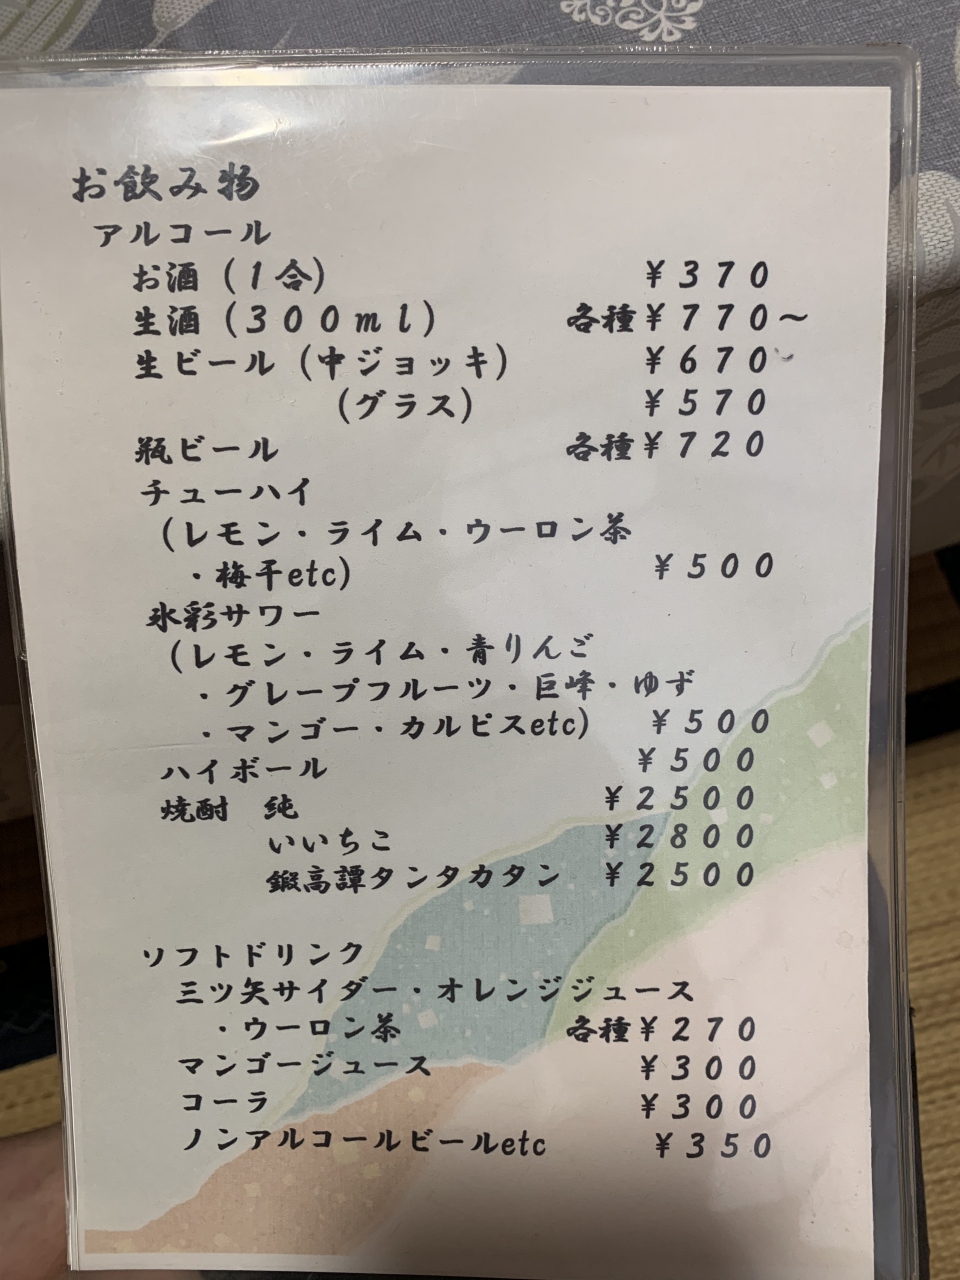 お飲み物
アルコール
お酒（１合） ￥３７０
生酒（３００ｍｌ） 各種￥７７０～
生ビール（中ジョッキ） ￥６７０
（グラス） ￥５７０
瓶ビール 各種￥７２０
チューハイ
（レモン・ライム・ウーロン茶
・梅干etc） ￥５００
氷彩サワー
（レモン・ライム・青りんご
・グレープフルーツ・巨峰・ゆず
・マンゴー・カルピスetc） ￥５００
ハイボール ￥５００
焼酎　純 ￥２５００
いいちこ ￥２８００
鍛高譚タンタカタン ￥２５００
ソフトドリンク
三ツ矢サイダー・オレンジジュース
・ウーロン茶 各種￥２７０
マンゴージュース ￥３００
コーラ ￥３００
ノンアルコールビールetc ￥３５０